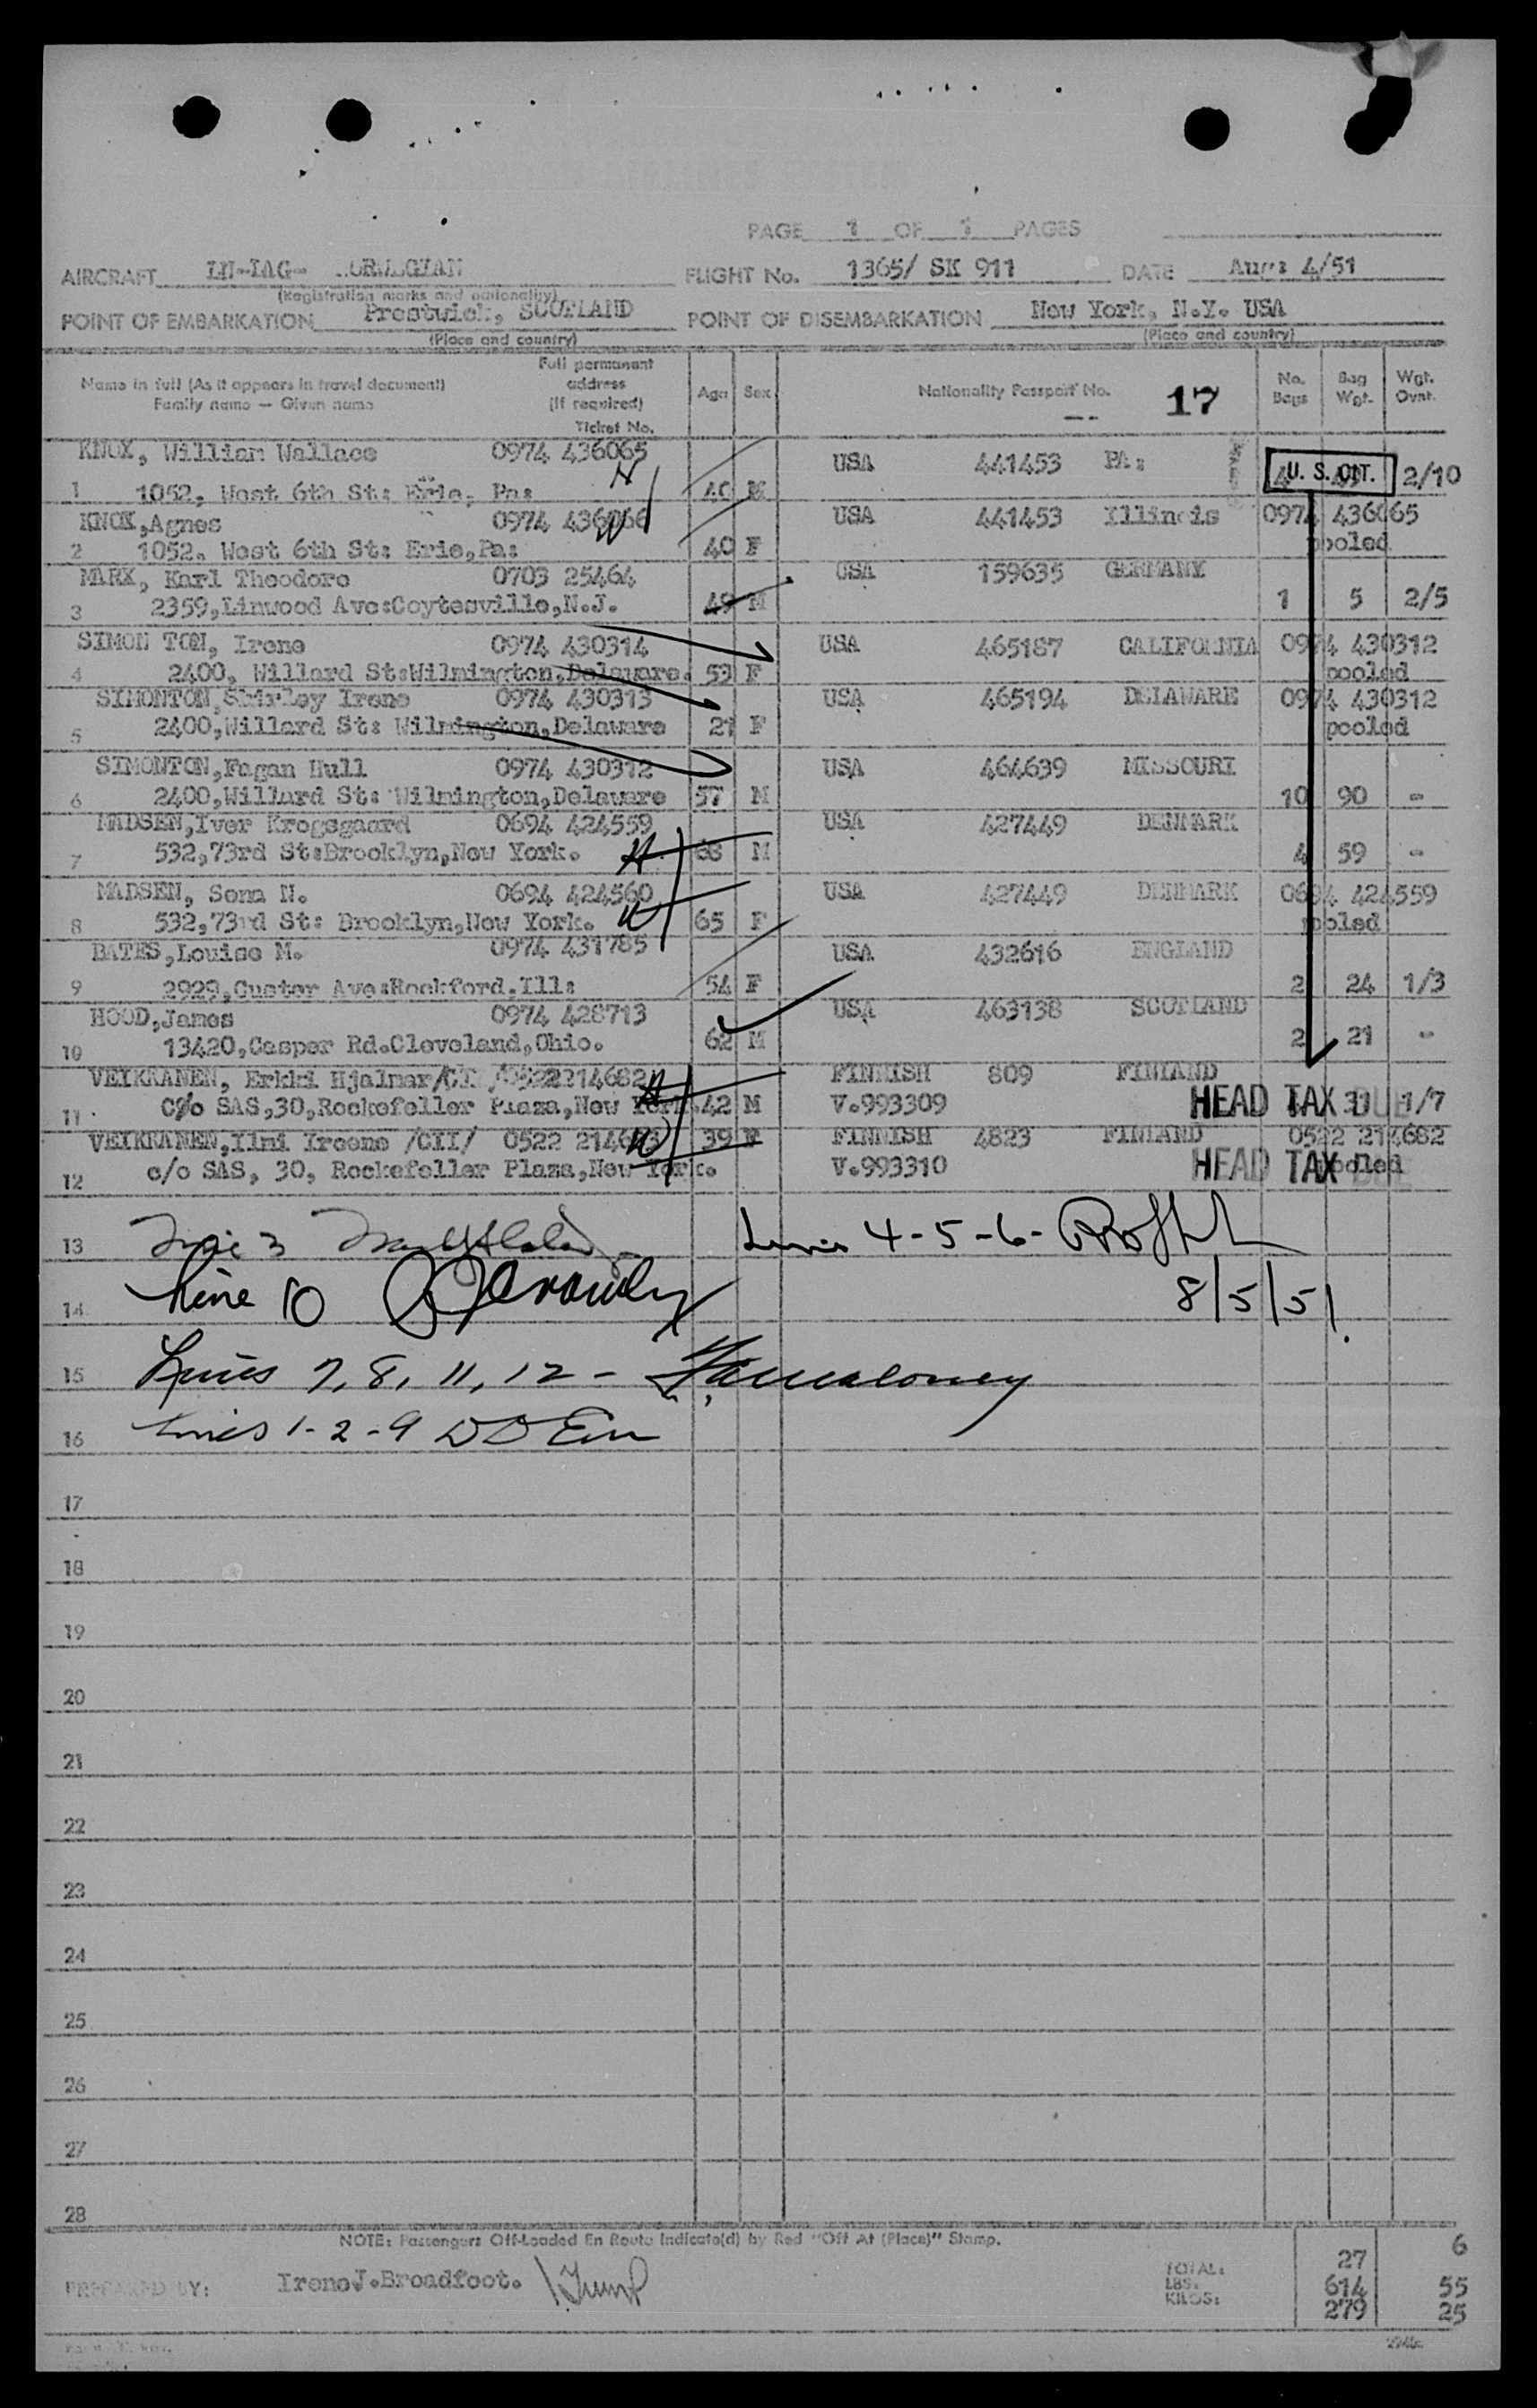 PAGE 1 OF 1 PAGES
AIRCRAFT LN-LAG- NORWEGIAN FLIGHT No. 1365/ SK 911 DATE Aug: 4/51
(Registration marks and nationality)
POINT OF EMBARKATION Prestwick, SCOTLAND POINT OF DISEMBARKATION New York, N.Y. USA
(Place and country) (Place and country)
Name in full (As it appears in travel document)
Family name — Given name
Full permanent
address
(If required)
Ticket No.
Age Sex Nationality Passport No. 17
No. Bags Bag Wgt. Wgt. Ovnt.
KNOX, William Wallace 0974 436065 USA 441453 PA: U. S. CIT. 2/10
1 1052, West 6th St: Erie, Pa: 40 M
KNOX,Agnes 0974 436066 USA 441453 Illinois 0974 436065
2 1052. West 6th St: Erie,Pa: 40 F pooled
MARX, Karl Theodore 0703 25464 USA 159635 GERMANY
3 2359,Linwood Ave:Coytesville,N.J. 49 M 1 5 2/5
SIMON TON, Irene 0974 430314 USA 465187 CALIFORNIA 0974 430312
4 2400, Willard St:Wilmington,Delaware. 53 F pooled
SIMONTON,Shirley Irene 0974 430313 USA 465194 DELAWARE 0974 430312
5 2400,Willard St: Wilmington,Delaware 21 F pooled
SIMONTON,Fagan Hull 0974 430312 USA 464639 MISSOURI
6 2400,Willard St: Wilmington,Delaware 57 M 10 90 -
MADSEN,Iver Krogsgaard 0694 424559 USA 427449 DENMARK
7 532,73rd St:Brooklyn,New York. H 68 M 4 59 -
MADSEN, Sena N. 0694 424560 USA 427449 DENMARK 0694 424559
8 532,73rd St: Brooklyn,New York. W 65 F pooled
BATES,Louise M. 0974 431785 USA 432616 ENGLAND
9 2929,Custer Ave:Rockford.Ill: 54 F 2 24 1/3
HOOD,James 0974 428713 USA 463138 SCOTLAND
10 13420,Casper Rd.Cleveland,Ohio. 62 M 2 21 -
VEIKKANEN, Erkki Hjalmar/CI /0522214682 FINNISH 809 FINLAND
11 C/o SAS,30,Rockefeller Plaza,New York. 42 M V.993309 HEAD TAX DUE 31 1/7
VEIKKANEN,Ilmi Ireene /CII/ 0522 214683 39 F FINNISH 4823 FINLAND 0522 214682
12 c/o SAS, 30, Rockefeller Plaza,New York. V.993310 HEAD TAX DUE pooled
13 Line 3 Lines 4-5-6-
14 Line 10 8/5/51.
15 Lines 7, 8, 11, 12 - Maloney
16 Lines 1-2-9
17
18
19
20
21
22
23
24
25
26
27
28
NOTE: Passengers Off-Loaded En Route Indicate(d) by Red "Off At (Place)" Stamp.
PREPARED BY: IreneJ.Broadfoot.
TOTAL: 27 6
LBS. 614 55
KILOS: 279 25